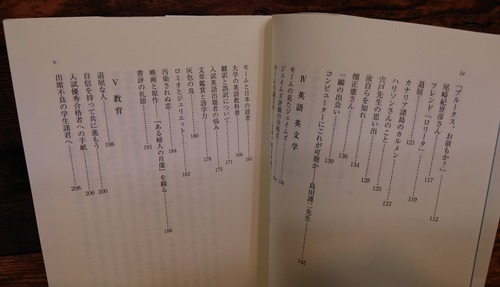 iv
「ブルータス、お前もか?」 112
尾崎紀世彦さん 117
フレンド『ロリータ』 119
退屈
カナリア諸島のカルメン 121
ハリソンさんのこと 123
宍戸先生の思い出 125
汝自らを知れ 128
畑正憲さん 134
一瞬の出会い 136
コンピューターにこれが可能か 139
島田謹二先生 142
Ⅳ 英語 英文学
モームの見たジェイムズ
モームと日本の読者 161
大学の英語教科書 166
翻訳と誤訳について 171
入試英語出題者の悩み 175
文章鑑賞と語学力 178
灰色の鳥 180
ロミオとジュリエット 182
汚染されぬ恋 184
映画と原作 『ある婦人の肖像』を観る 186
書評の礼節 191
Ⅴ 教育
退屈な人 198
自信を持って共に進もう 200
入試優秀合格者への手紙 206
出席不良の学生諸君へ 208
v